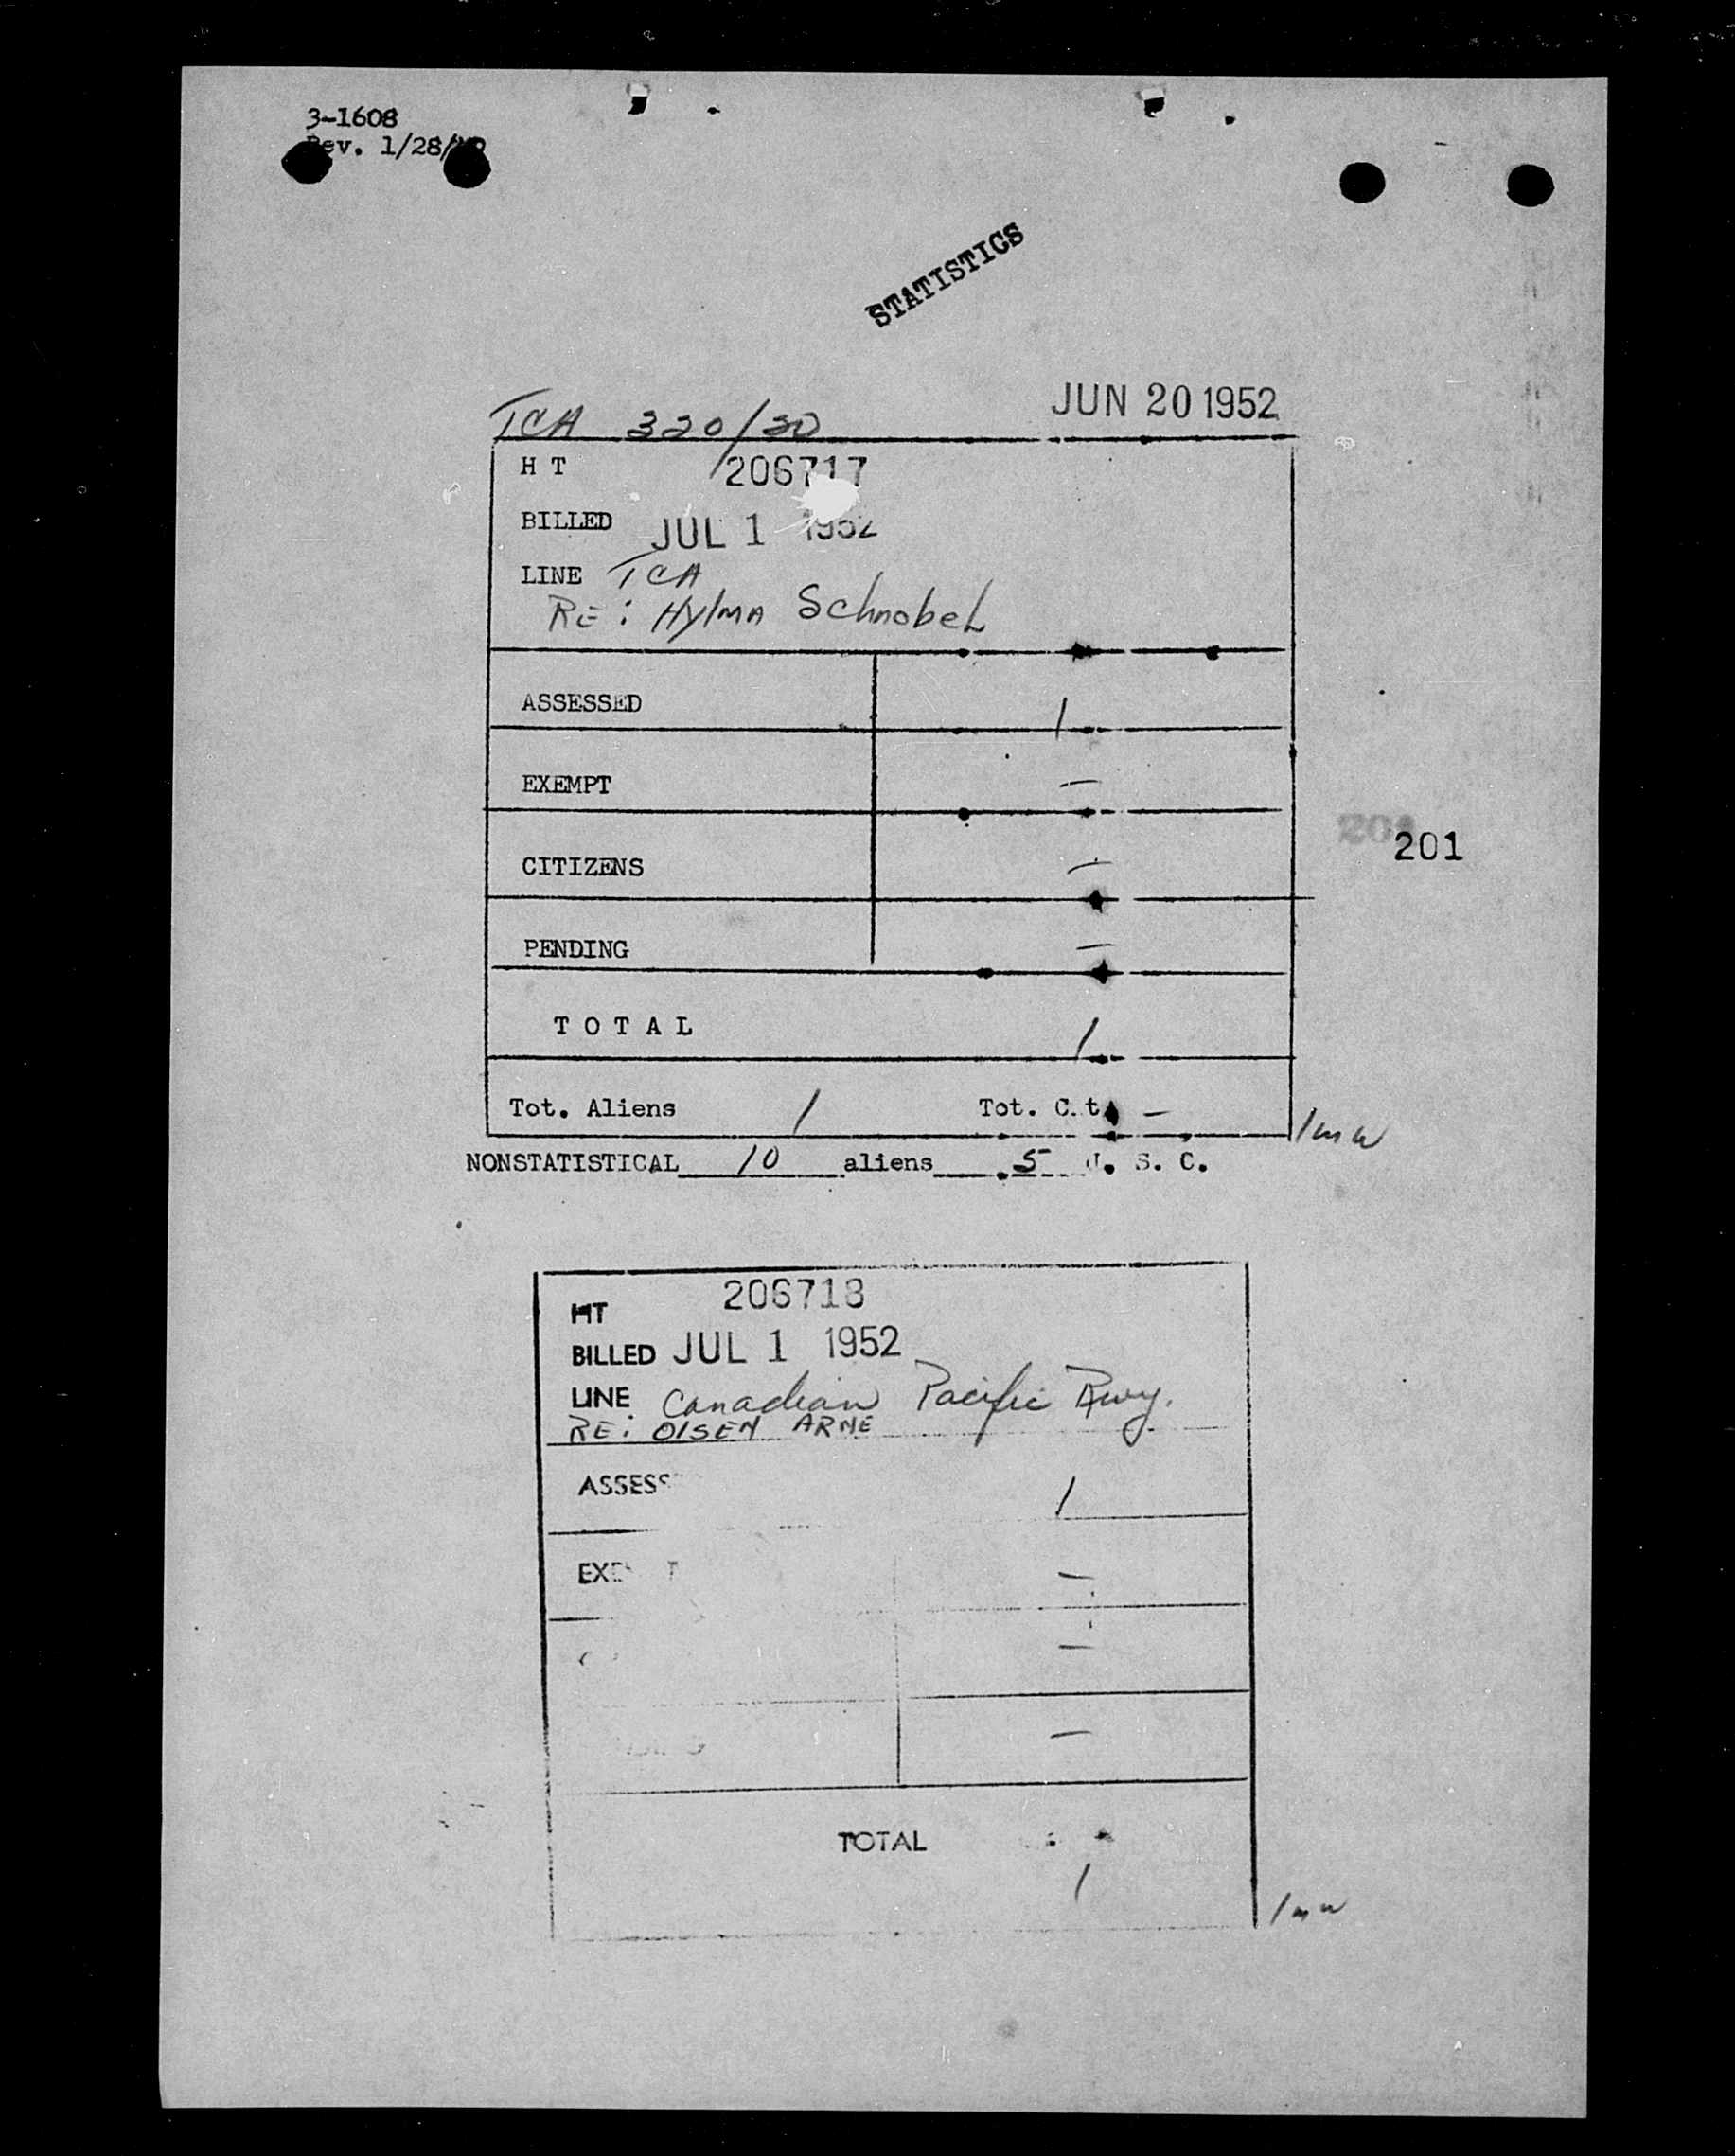 3-1608
Rev. 1/28/
STATISTICS
TCA 320/30 JUN 20 1952
H T 206717
BILLED JUL 1 1952
LINE TCA
RE: Hylma Schnobel
ASSESSED 1
EXEMPT —
CITIZENS —
201
PENDING —
T O T A L 1
Tot. Aliens 1 Tot. C.t. —
/mw
NONSTATISTICAL 10 aliens 5 U. S. C.
HT 206718
BILLED JUL 1 1952
LINE Canadian Pacific Rwy.
RE: OLSEN ARNE
ASSESS 1
—
—
—
TOTAL
1
/mw